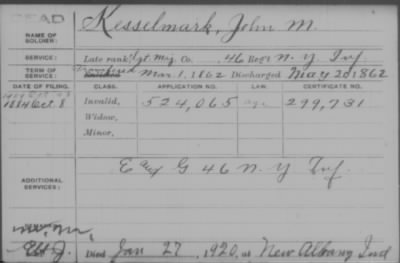 DEAD
NAME OF SOLDIER: Kesselmark, John M.
SERVICE: Late rank, Sgt. Maj. Co. , 46 Reg't N. Y. Inf.
TERM OF SERVICE: Enrolled Mar. 1, 1862 Discharged May 20 1862
DATE OF FILING. CLASS. APPLICATION NO. LAW. CERTIFICATE NO.
1884 Oct. 8 Invalid, 524,065 299,731
Widow,
Minor,
ADDITIONAL SERVICES: E G 46 N. Y. Inf.
Died Jan 27, 1920, at New Albany Ind